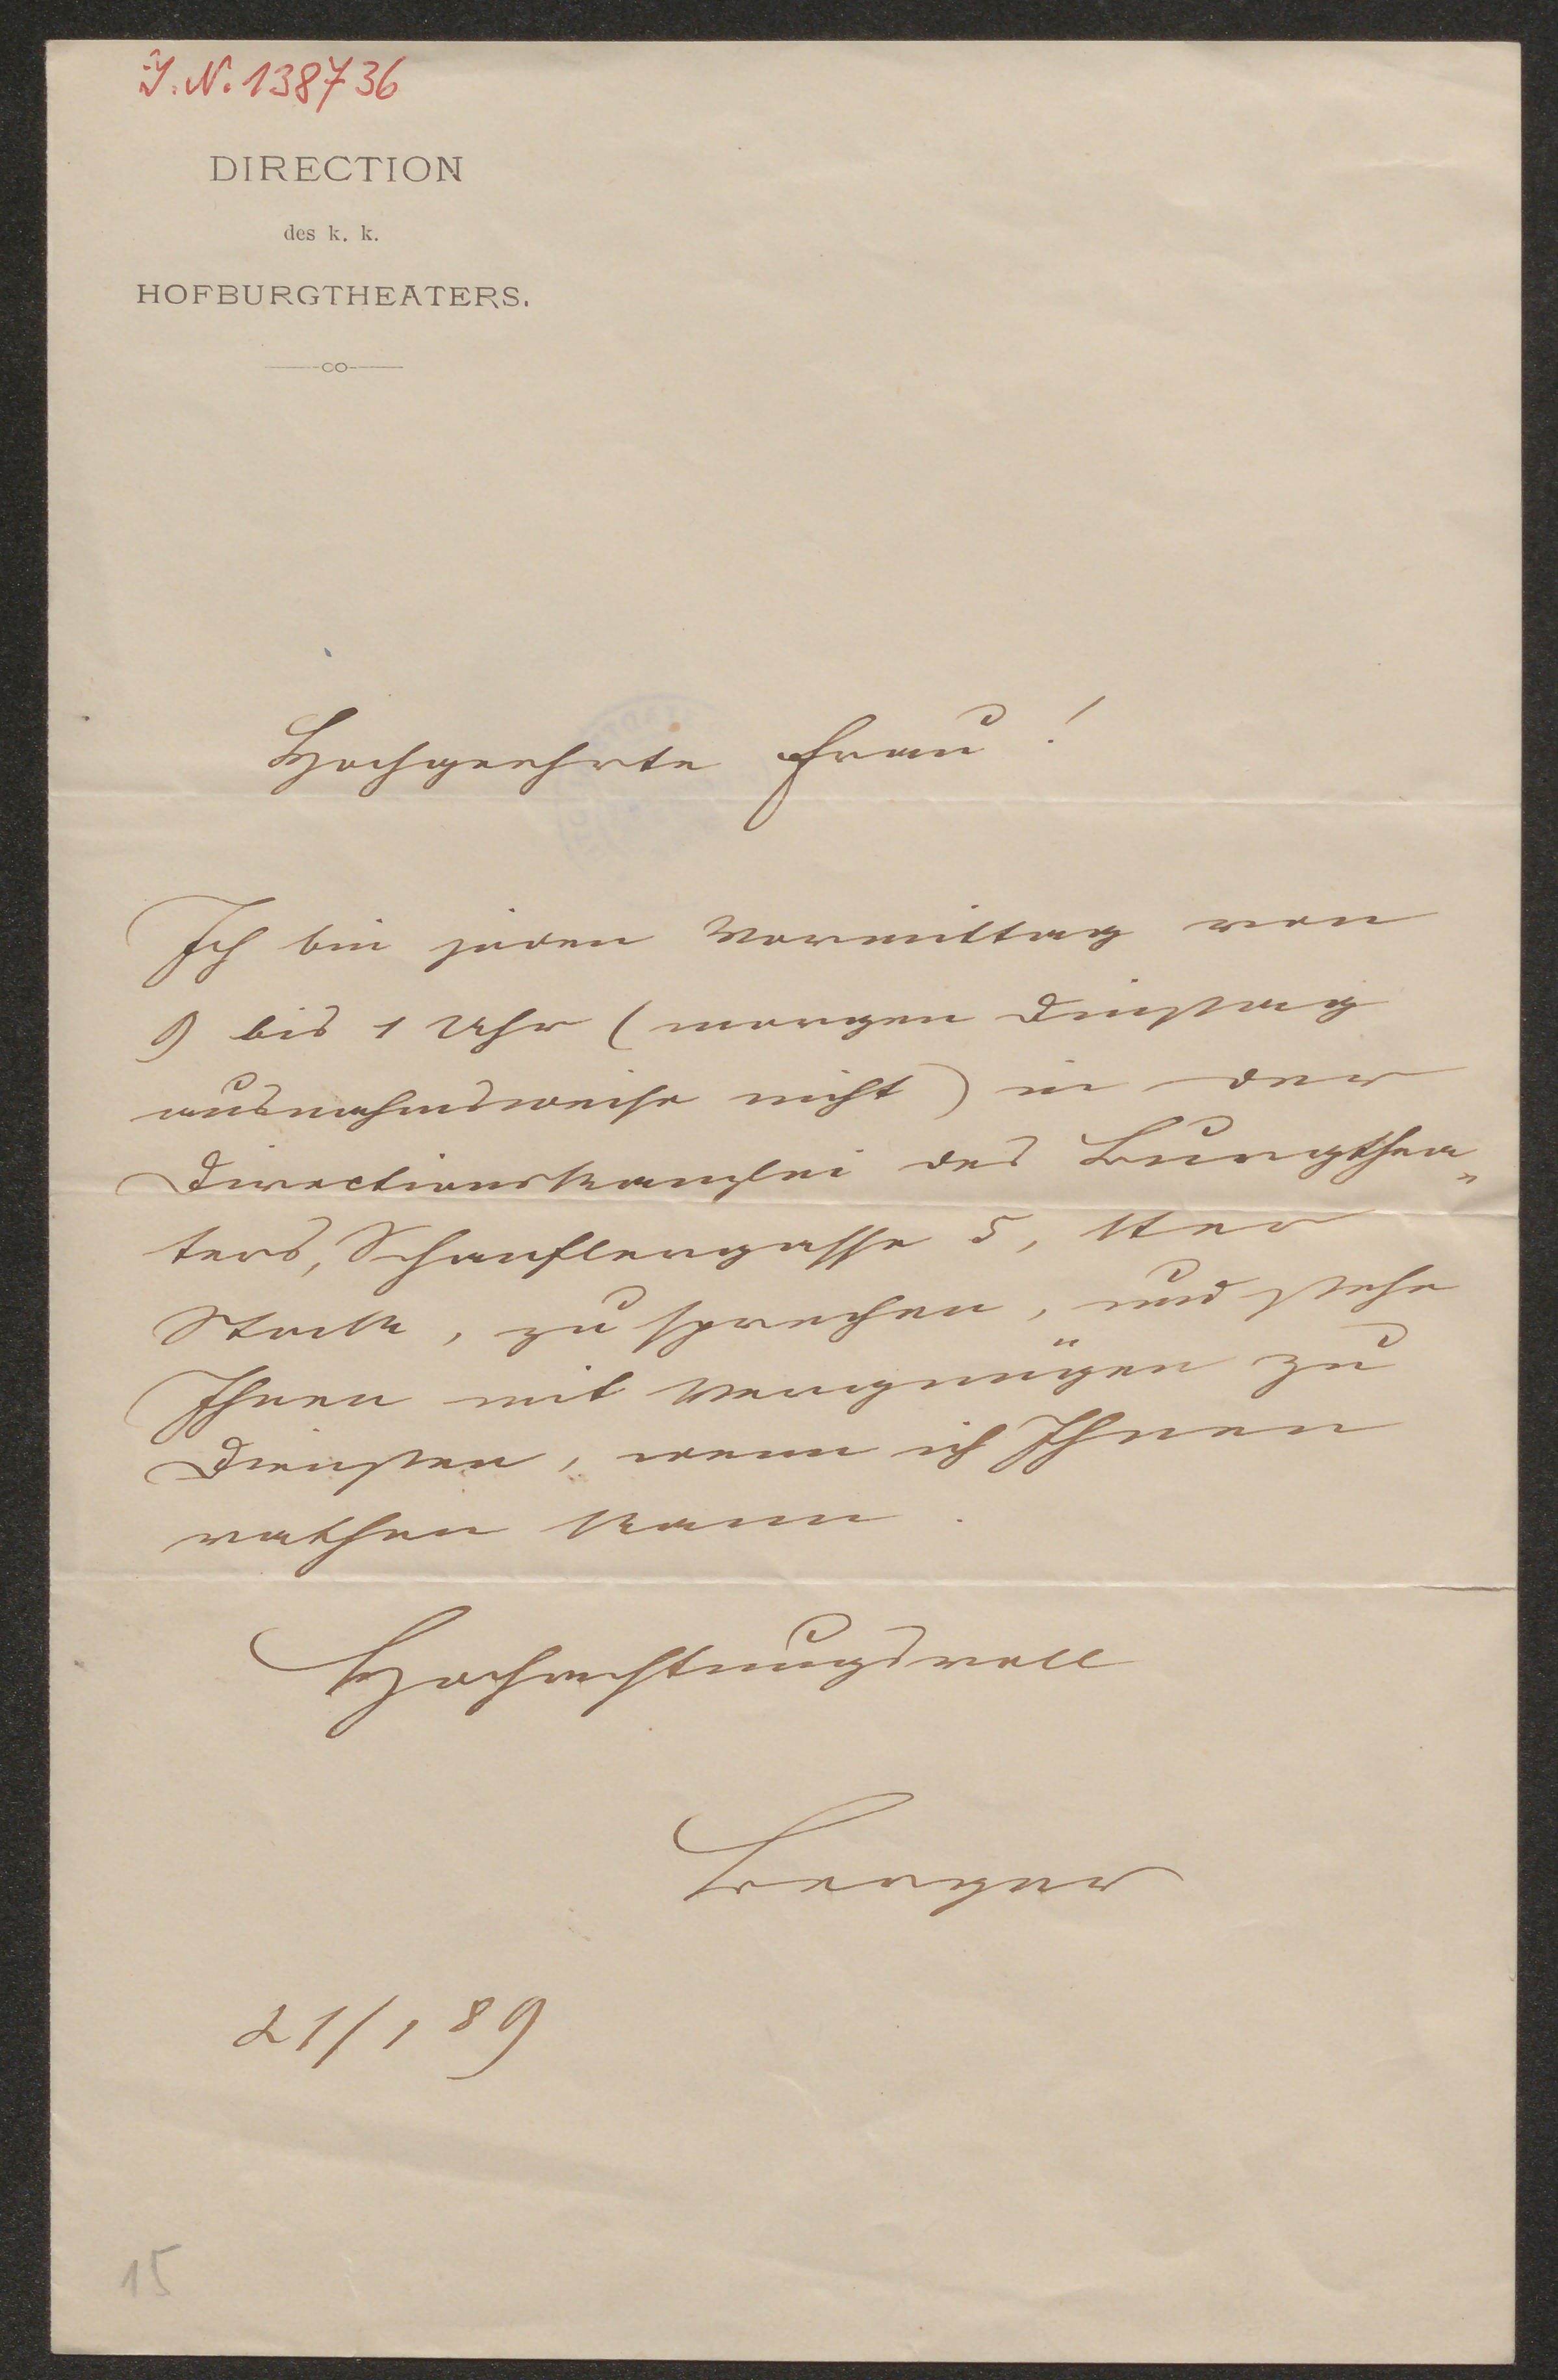 J. N. 138736
DIRECTION
des k. k.
HOFBURGTHEATERS.
Hochgeehrte Frau!
Ich bin jeden Vormittag von
9 bis 1 Uhr (morgen Dinstag
ausnahmsweise nicht) in der
Directionskanzlei des Burgthea„
ters, Schauflergasse 5, 1ter
Stock, zu sprechen, und stehe
Ihnen mit Vergnügen zu
Diensten, wenn ich Ihnen
rathen kann.
Hochachtungsvoll
Berger
21/1 89
15